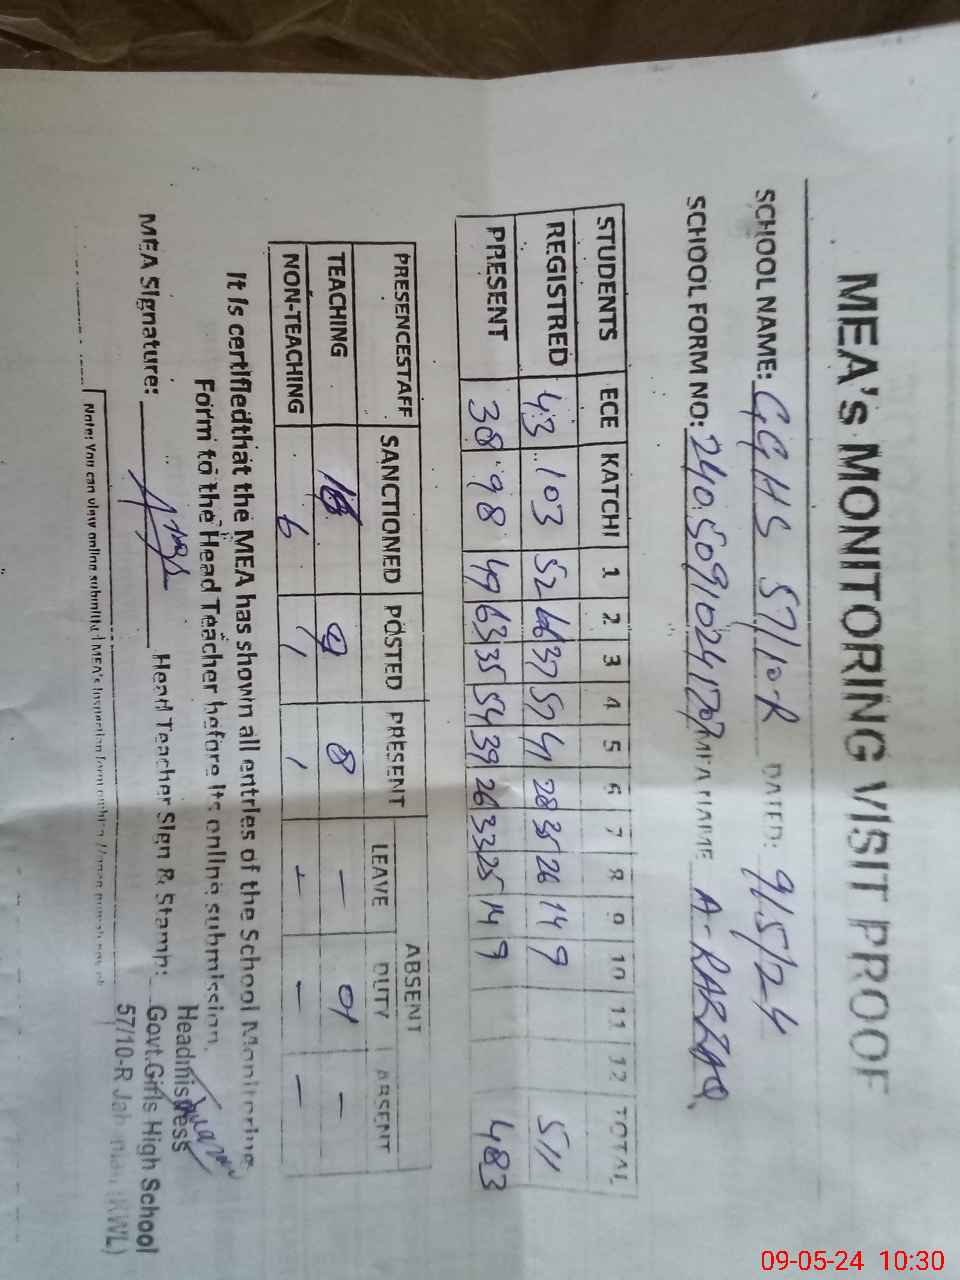 MEA's MONITORING VISIT PROOF
SCHOOL NAME: GGHS 57/10-R DATED: 9/5/24
SCHOOL FORM NO: MEA NAME A-RAZZAQ
STUDENTS ECE KATCHI 1 2 3 4 5 6 7 8 9 10 11 12 TOTAL
REGISTRED 43 103 52 66 37 57 41 28 35 26 14 9 511
PRESENT 38 98 49 63 35 54 39 26 33 25 14 9 483
PRESENCESTAFF SANCTIONED POSTED PRESENT ABSENT
LEAVE DUTY ABSENT
TEACHING 9 8 — 01 —
NON-TEACHING 6 1 1 - - —
It is certifiedthat the MEA has shown all entries of the School Monitoring
Form to the Head Teacher before its online submission.
MEA Signature: Head Teacher Sign & Stamp:
Headmistress
Govt.Girls High School
57/10-R (KWL)
Note: You can view online submitted MEA's Inspection form
09-05-24 10:30